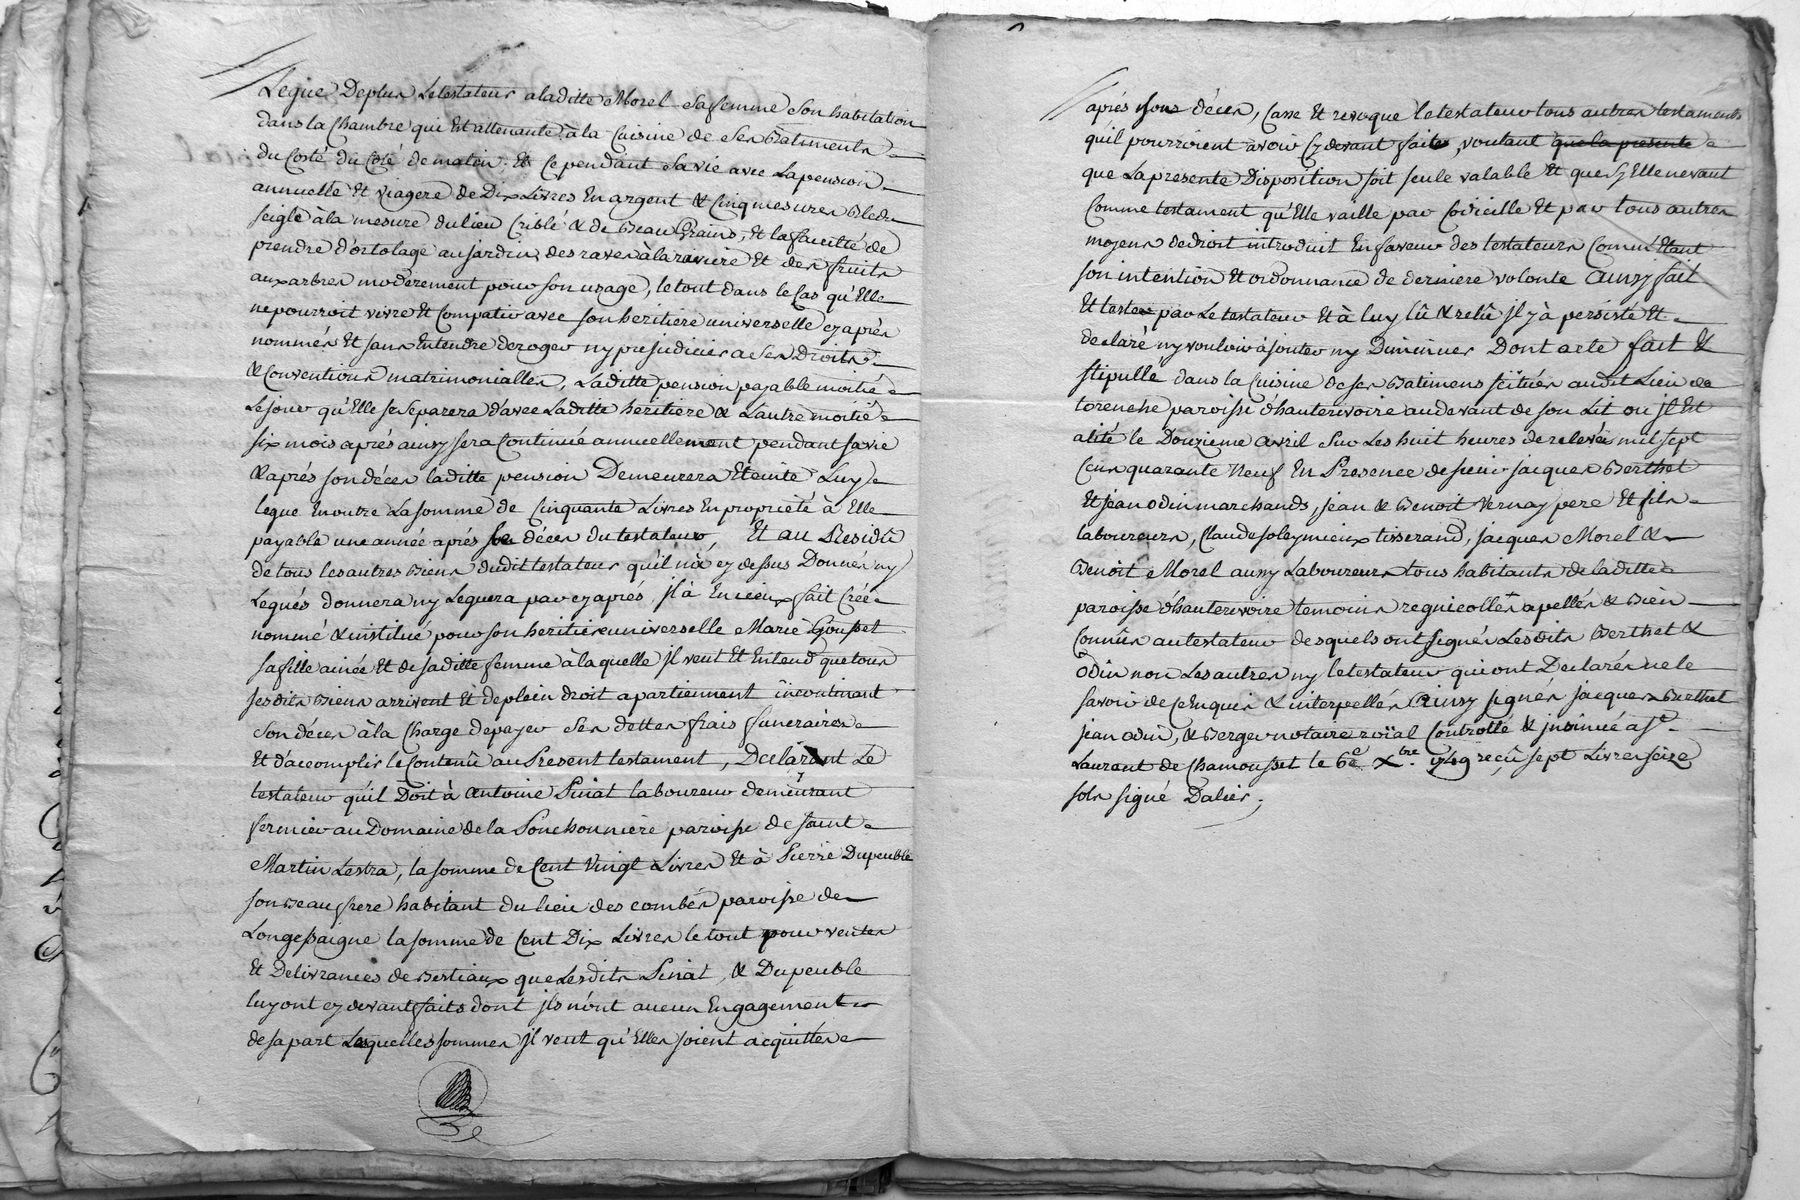 Legue Deplus Letestateur aladitte Morel Safemme Son habitation
dans la Chambre qui Est attenante à la Cuisine de Ses Batiments
du Costé du Coté de matin, Et Ce pendant Sa vie avec Lapension
annuelle Et viagere de Dix Livres En argent & Cinq mesures Bled
seigle à la mesure du lieu Criblé & de Beau Grains, Et la faculté de
prendre d'ortolage au jardin, des raves à la raviere Et des fruits
aux arbres moderement pour son usage, le tout dans le Cas qu'Elle
ne pourroit vivre Et Compatir avec son heritiere universelle cy apres
nommés Et sans Entendre deroger ny prejudicier a Ses Droits
& Conventions matrimonialles, Laditte pension payable moitié
Le jour qu'Elle se Separera d'avec Laditte heritiere & Lautre moitié
six mois aprés ainsy sera Continuée annuellement pendant sa vie
& aprés son décés laditte pension Demeurera Eteinte Luy
legue En outre La somme de Cinquante Livres En propriété à Elle
payable une année aprés le décés du testateur Et au Residû
de tous les autres Biens dudit testateur qu'il n'à cy dessus Donnés ny
Legués donnera ny Leguera par cy aprés, jl à En iceux fait Créé
nommé & institué pour son heritiere universelle Marie Goutset
sa fille ainée Et de saditte femme à laquelle jl veut Et Entend que tous
sesdits Biens arrivent Et de plein droit apartiennent incontinant
Son décés à la Charge depayer Ses dettes frais funeraires
Et d'accomplir le Contenû au Present testament, Declarant Le
testateur qu'il Doit à Antoine Piriat laboureur demeurant
fermier au Domaine de la Ponchonniere paroisse de Saint
Martin Lestra, la somme de Cent Vingt Livres Et à Pierre Dupeuble
son Beau frere habitant du lieu des combes paroisse de
Longessaigne la somme de Cent Dix Livres le tout pour ventes
Et Delivrances de Bestiaux que Lesdits Piriat, & Dupeuble
luy ont cy devant faits dont jls n'ont aucun Engagement
de sa part Lesquelles sommes jl veut qu'Elles soient acquittés
aprés sons décés, Casse Et revoque le testateur tous autres testaments
qu'il pourroient avoir Cy devant faits, voulant que la presente
que La presente Disposition soit seule valable Et que sy Elle ne vaut
Comme testament qu'Elle vaille par Codicille Et par tous autres
moyens de droit introduit En faveur des testateurs Comme Etant
son intention Et ordonnance de derniere volonte Ainsy fait
Et testé par Le testateur Et à luy lû & relû jl y à persisté Et
declaré ny vouloir ajouter ny Diminuer Dont acte fait &
stipullé dans la Cuisine de ses Batimens scitués audit Lieu de
torenche paroisse d'hauterivoire au devant de son Lit ou jl Est
alité le Douzieme Avril Sur Les huit heures de relevée mil sept
Cens quarante Neuf En Presence de sieur jacques Berthet
Et jean odin marchands, jean & Benoit Vernay pere Et fils
laboureurs, Claude soleymieux tisserand, jacques Morel &
Benoit Morel aussy Laboureurs tous habitants de laditte
paroisse d'hauterivoire temoins regnicolles apellés & Bien
Connûs au testateur desquels ont signés Lesdits Berthet &
odin non Les autres ny le testateur qui ont Declarés ne le
savoir de ce Enquis & interpellés Ainsy signés jacques Berthet
jean odin, & Berger notaire roïal Controllé & jnsinué à St
Laurent de Chamousset le 6e Xbre 1749 reçû sept Livres seize
sols signé Dalier,